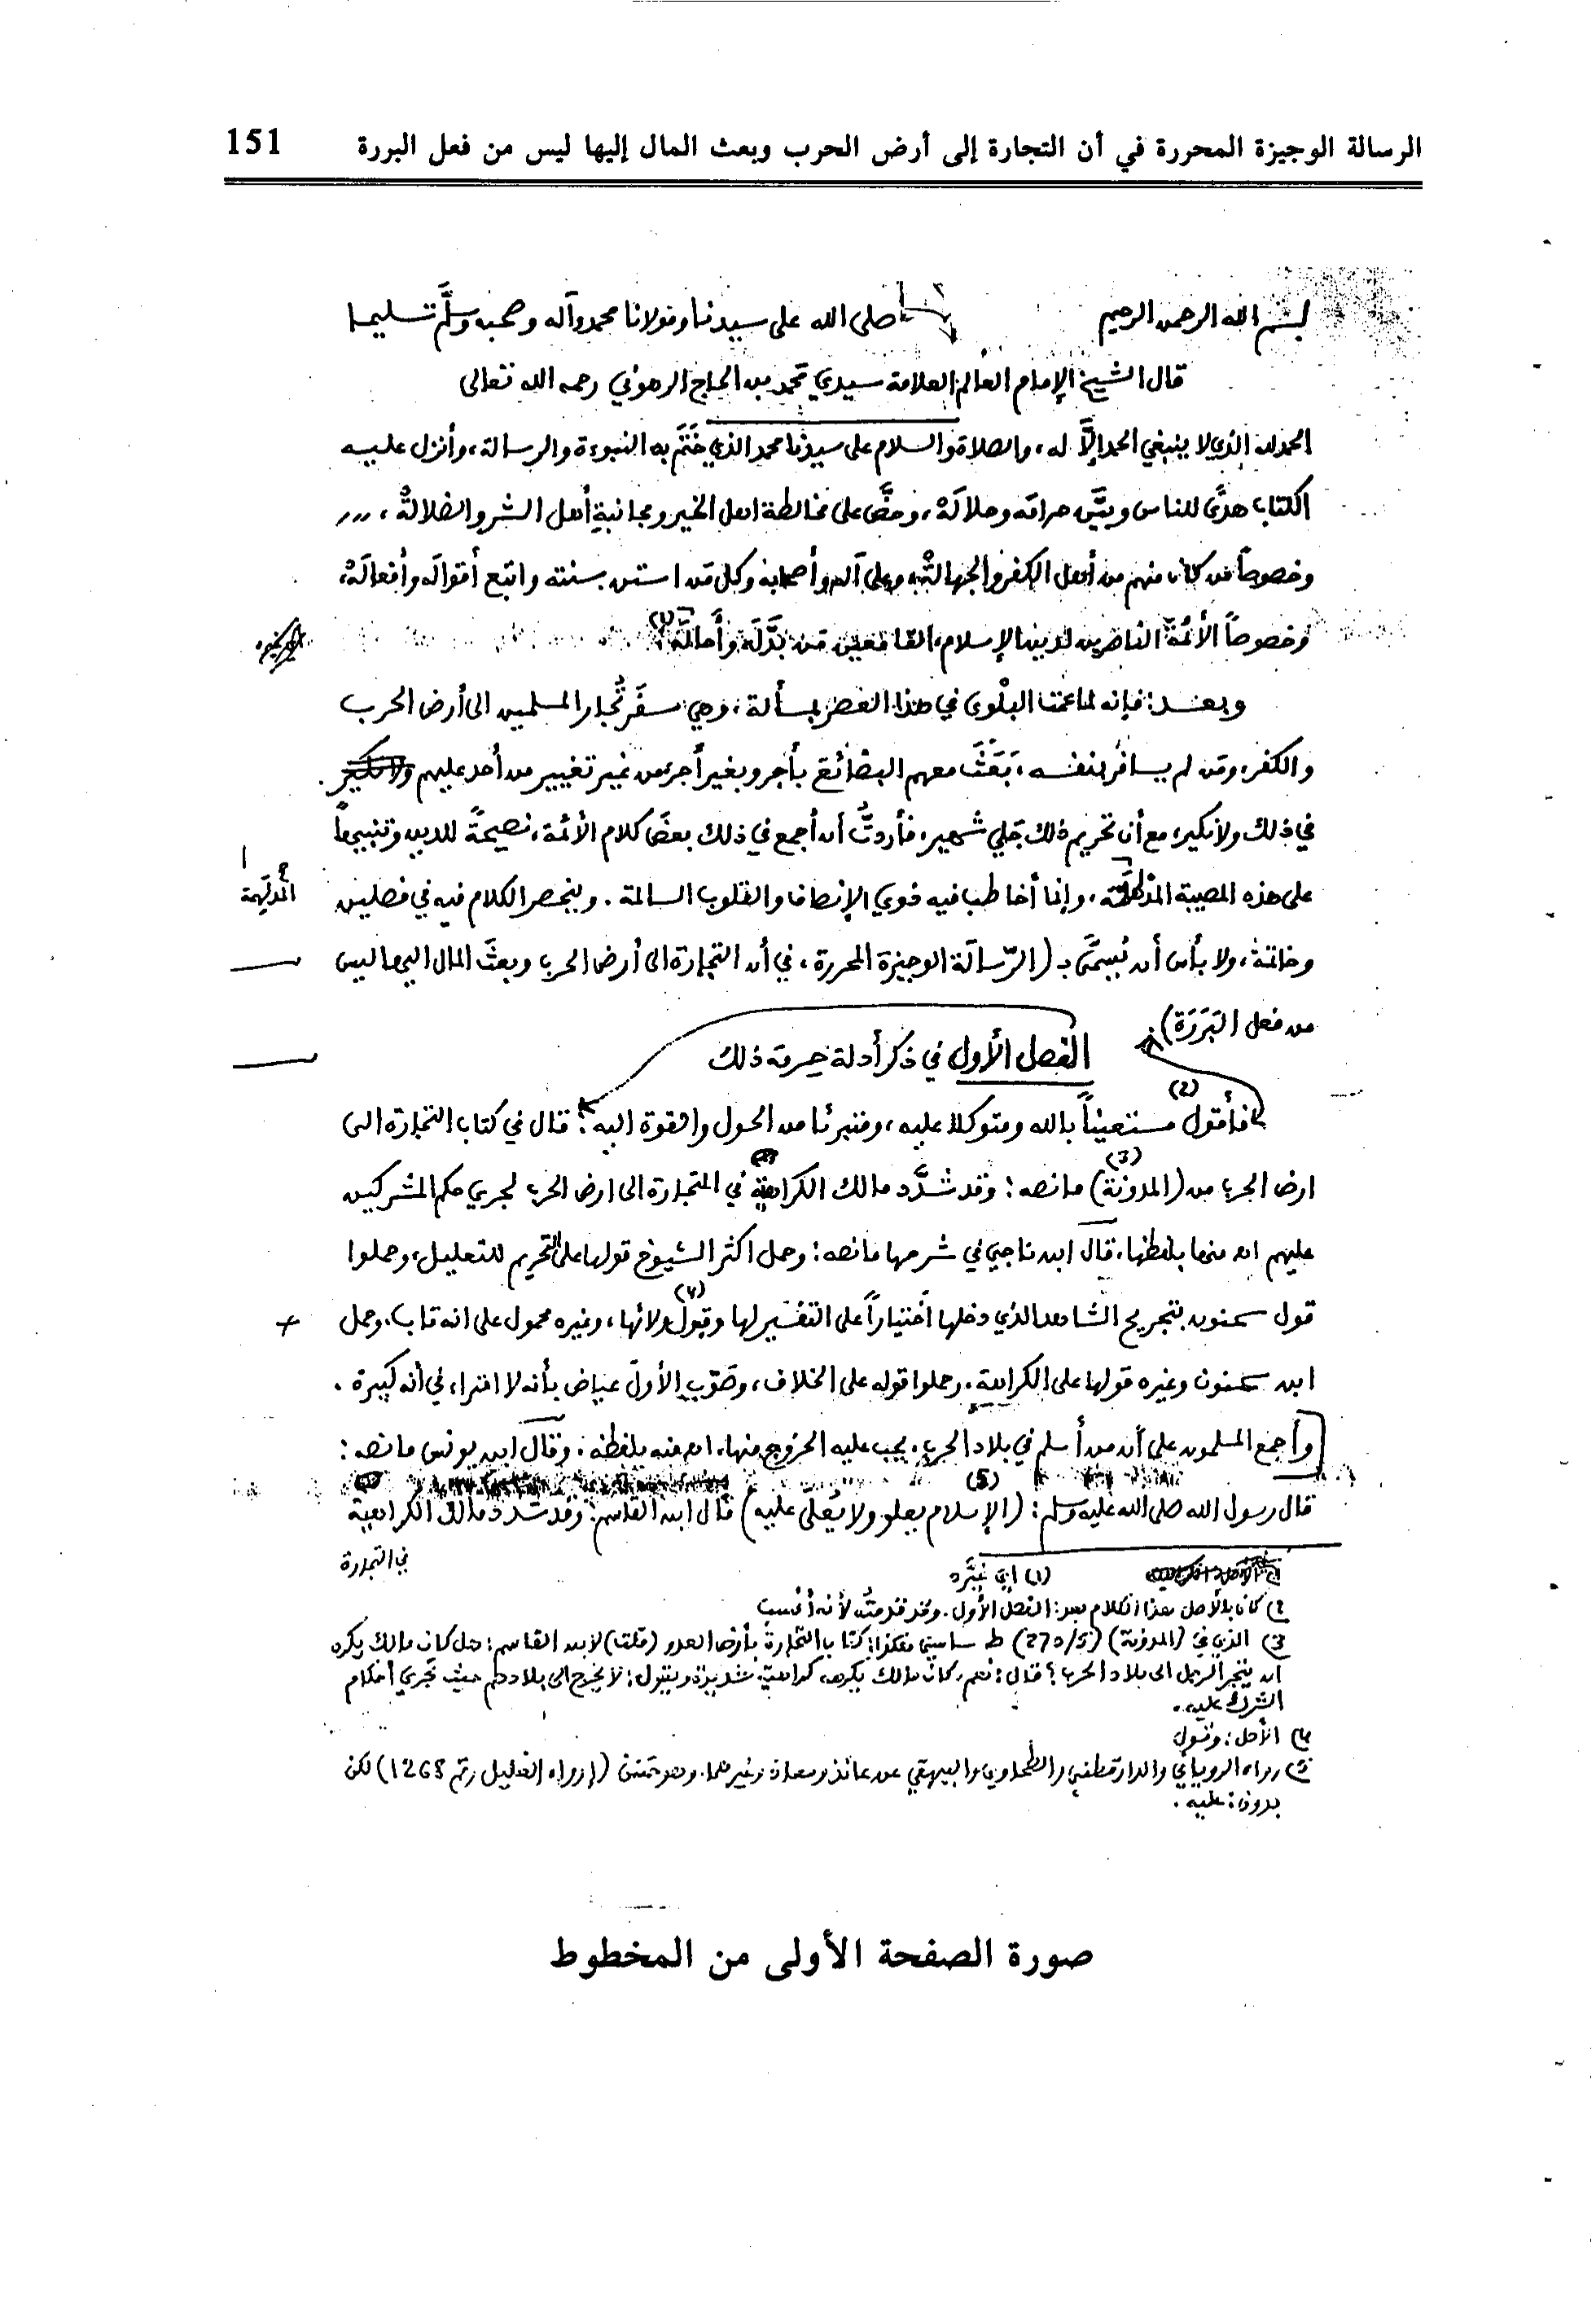 الرسالة الوجيزة المحررة في أن التجارة إلى أرض الحرب وبعث المال إليها ليس من فعل البررة 151
بسم الله الرحمن الرحيم صلى الله على سيدنا ومولانا محمد وآله وصحبه وسلَّم تسليما
قال الشيخ الإمام العالم العلامة سيدي محمد بن الحاج الرهوني رحمه الله تعالى
الحمد لله الذي لا ينبغي الحمد إلاَّ له، والصلاة والسلام على سيدنا محمد الذي خَتَمَ به النبوءة والرسالة، وأنزل عليه
الكتاب هدًى للناس وبيَّن حرامَه وحلالَهُ، وحضَّ على مخالطة أهل الخير ومجانبةِ أهل الشر والضلالةْ،
وخصوصاً من كان منهم من أهل الكفر والجهالةْ، وعلى آله وأصحابه وكل من استن بسنته واتبع أقوالَه وأفعالَهْ،
وخصوصاً الأئمة الناصرين لدين الإسلام، القامعين من بَدَّلَه وأَحالَهْ (1).
وبعــد: فإنه لما عمت البلْوى في هذا العصر بمسألة، وهي سفَر تُجار المسلمين الى أرض الحرب
والكفر، ومَن لم يسافر بنفسه، بَعَثَ معهم البضائعَ بأجر وبغير أجر، من غير تغيير من أحد عليهم
في ذلك ولا نكير، مع أن تحريم ذلك جَلي شهير، فأردتُّ أن أجمع في ذلك بعضَ كلام الأئمة، نصيحةً للدين وتنبيهاً
على هذه المصيبة المدلهمَّة، وإنما أخاطب فيه ذوي الإنصاف والقلوب السالمة. وينحصر الكلام فيه في فصلين
المُدلَهِمَّة
وخاتمة، ولا بأس أن يُسمَّى بـ (الرّسالة الوجيزة المحررة، في أن التجارة الى أرض الحرب وبعثَ المال اليها ليس
من فعل البَرَرَة)
الفصل الأول في ذكر أدلة حرمة ذلك
فأقول (2) مستعيناً بالله ومتوكلا عليه، ومتبرئا من الحول والقوة اليه: قال في كتاب التجارة الى
ارض الحرب من (المدونة) (3) ما نصه: وقد شدَّد مالك الكراهية في التجارة الى ارض الحرب لجري حكم المشركين
عليهم اهـ منها بلفظها، قال ابن ناجي في شرحها ما نصه: وحمل اكثر الشيوخ قولها على التحريم للتعليل، وحملوا
قول سحنون بتجريح الشاهد الذي دخلها اختياراً على التفسير لها وقبول (4) ولائها، وغيره محمول على انه تاب. وحمل
ابن سحنون وغيره قولها على الكراهة. وحملوا قوله على الخلاف، وصَوّب الأولَ عياض بأنه لا امتراء في أنه كبيرة.
[وأجمع المسلمون على أن من أسلم في بلاد الحرب، يجب عليه الخروج منها، اهـ منه بلفظه. وقال ابن يونس ما نصه:
قال رسول الله صلى الله عليه وسلم: (الإسلام يعلو ولا يُعلى عليه) (5) قال ابن القاسم: وقد شدد مالك الكراهية
في التجارة
(1) اي غيَّره
2) كان بالأصل هذا الكلام بعد: الفصل الأول. وقد قدمتُه لأنه أنسب
3) الذي في (المدونة) (5/270) ط ساسي هكذا: كتاب التجارة بأرض العدو (قلت) لابن القاسم: هل كان مالك يكره
ان يتجر الرجل الى بلاد الحرب؟ قال: نعم، كان مالك يكرهه كراهية شديدة ويقول: لا يخرج الى بلادهم حيث تجري أحكام
الشرك عليه.
4) الأصل: وقبول
5) رواه الروياني والدارقطني والطحاوي والبيهقي عن عائذ ومعاذ وغيرهما. وهو حَسَن (إرواء الغليل رقم 1268) لكن
بدون: عليه.
صورة الصفحة الأولى من المخطوط